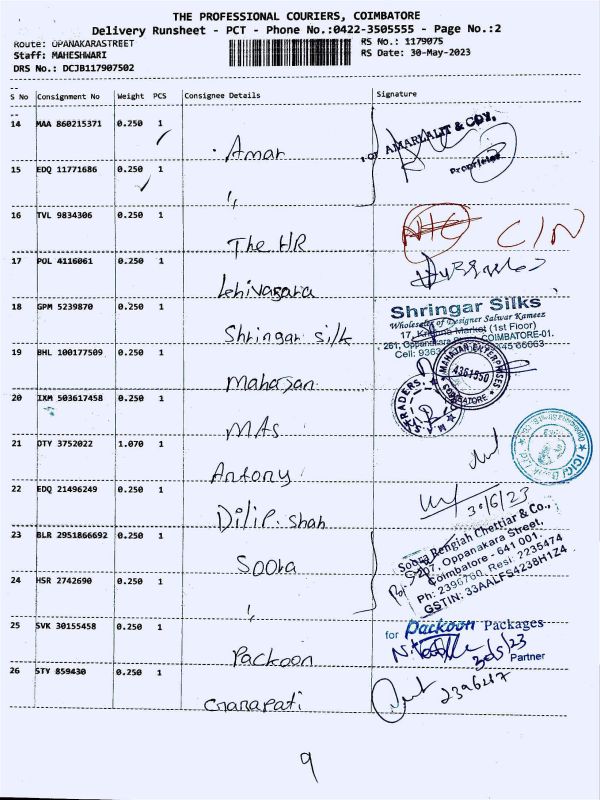 THE PROFESSIONAL COURIERS, COIMBATORE
Delivery Runsheet - PCT - Phone No.:0422-3505555 - Page No.:2
Route: OPANAKARASTREET RS No.: 1179075
Staff: MAHESHWARI RS Date: 30-May-2023
DRS No.: DCJB117907502
S No Consignment No Weight PCS Consignee Details Signature
14 MAA 860215371 0.250 1 Amar
AMARLALIT & COY.
Proprietor
15 EDQ 11771686 0.250 1 "
16 TVL 9834306 0.250 1 The HR
C/N
17 POL 4116061 0.250 1
18 GPM 5239870 0.250 1 Shringar silk
Shringar Silks
Wholesaler of Designer Salwar Kameez
17, Market (1st Floor)
261, Oppanakara COIMBATORE-01.
19 BHL 100177509 0.250 1 Mahajan
MAHAJAN ENTERPRISES
4361550
COIMBATORE
20 IXM 503617458 0.250 1 MAS
M.A.S. TRADERS
21 DTY 3752022 1.070 1 Antony
ICICI Bank Ltd
22 EDQ 21496249 0.250 1 Dilip. shah
30/6/23
23 BLR 2951866692 0.250 1 Soora
Soora Rengiah Chettiar & Co.,
Oppanakara Street,
Coimbatore - 641 001.
Ph: 2396760, Resi: 2235474
GSTIN: 33AALFS4238H1Z4
24 HSR 2742690 0.250 1 "
25 SVK 30155458 0.250 1 Packoon
for Packoon Packages
30/5/23
Partner
26 STY 859430 0.250 1 Ganapati
9